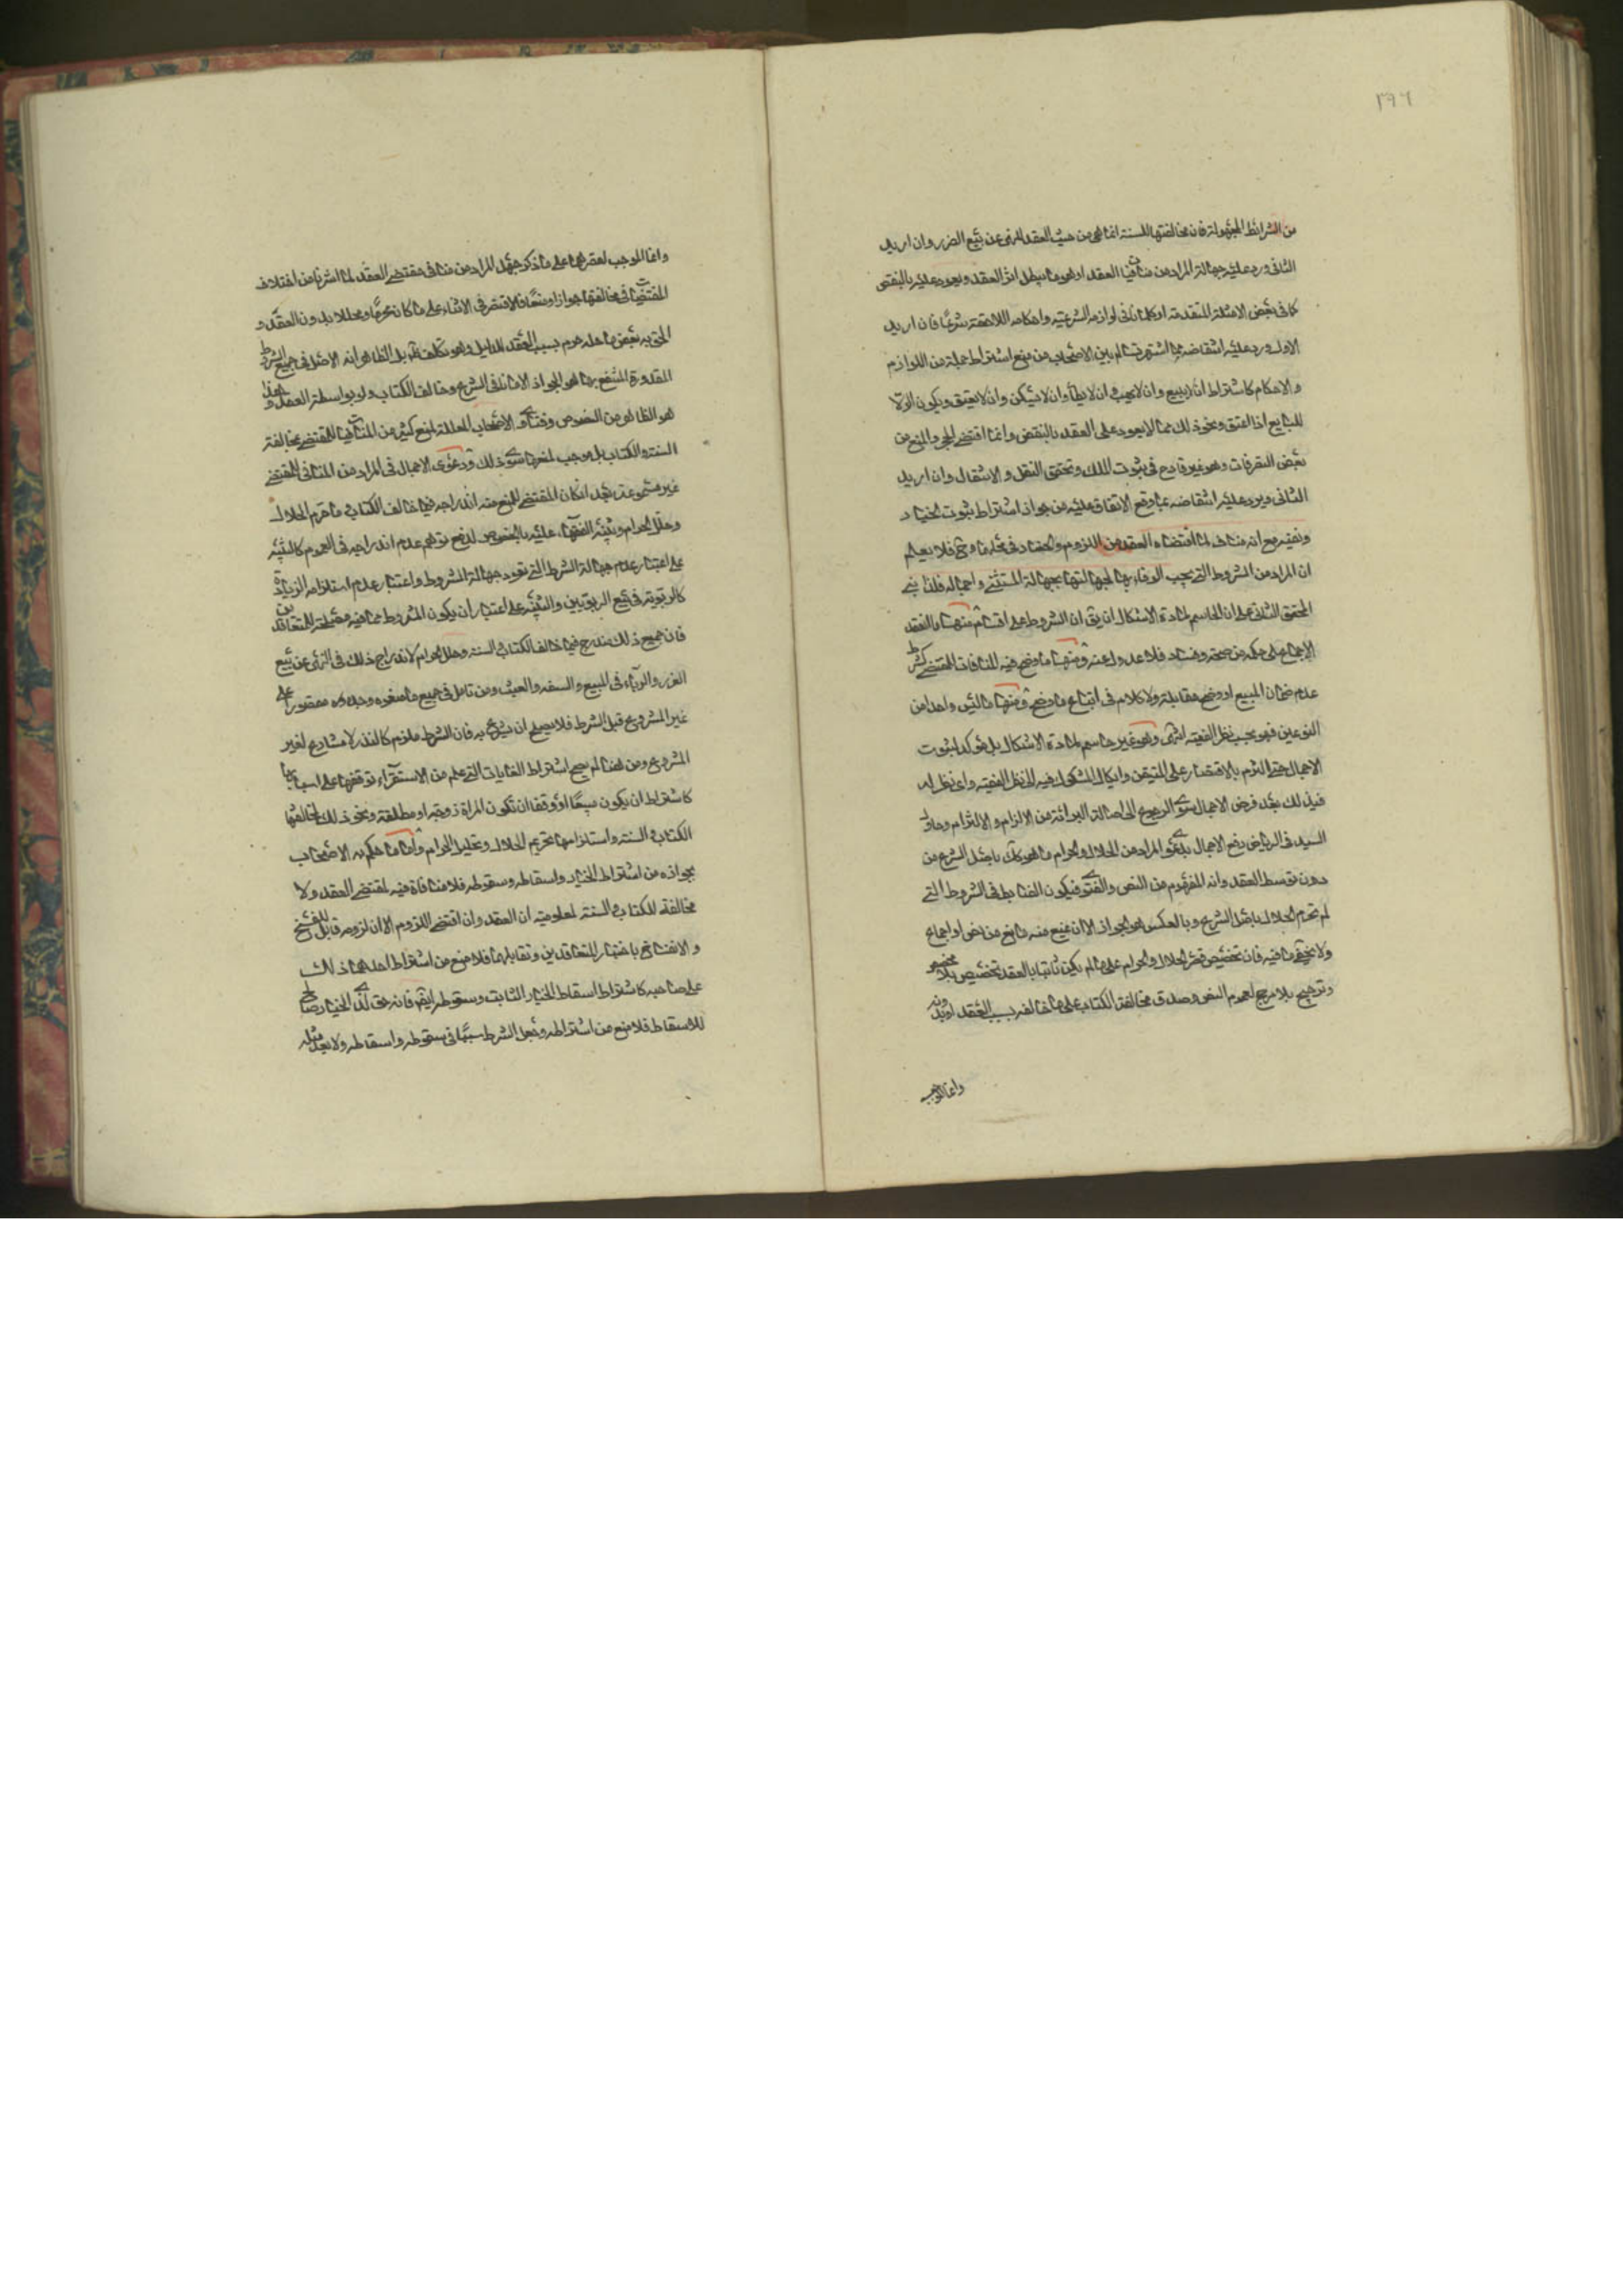 ٢٩٦
من الشرائط المجهولة فان مخالفتها للسنة انما هى من حيث العقد للنهى عن بيع الغرر وان اريد
الثانى ورد عليه جهالة المراد من منافيات العقد اذ هو ما يبطل اثر العقد ويعود عليه بالنقض
كما فى بعض الامثلة المتقدمة او كلما نافى لوازمه الشرعية واحكامه اللاحقة شرعا فان اريد
الاول ورد عليه انتقاضه بما اشتهر بين الاصحاب من منع اشتراط جملة من اللوازم
والاحكام كاشتراط ان لا يبيع وان لا يهب وان لا يطأ وان لا يسكن وان لا يعتق ويكون الولاء
للبايع اذا اعتق ونحو ذلك مما لا يعود على العقد بالنقض وانما اقتضى الحجر والمنع من
بعض التصرفات وهو غير قادح فى ثبوت الملك وتحقق النقل والانتقال وان اريد
الثانى ويرد عليه انتقاضه بما وقع الاتفاق عليه من جواز اشتراط ثبوت الخيار
ونفيه مع انه مناف لما اقتضاه العقد من اللزوم والخيار فى محله فلا يعلم
ان المراد من الشروط التى يجب الوفاء بها لجهالتها بجهالة المستثنى واجماله فلذا بنى
المحقق الثانى على ان الحاسم لمادة الاشكال ان يق ان الشروط على اقسام منها ما انعقد
الاجماع على حكمه من صحة وفساد فلا عدول عنه ومنها ما وضح فيه المنافات للمقتضى كشرط
عدم ضمان المبيع او وضح مقابله ولا كلام فى اتباع ما وضح ومنها ما ليس واحدا من
النوعين فهو بحسب نظر الفقيه انتهى وهو غير حاسم لمادة الاشكال بل مؤكد لثبوت
الاجمال حتى التزم بالاقتصار على المتيقن وايكال المشكوك فيه الى نظر الفقيه واى نظر له
فى ذلك بعد فرض الاجمال سوى الرجوع الى اصالة البرائة من الالزام والالتزام وحاول
السيد فى الرياض دفع الاجمال بدعوى المراد من الحلال والحرام ما هو كك باصل الشرع من
دون توسط العقد وانه المفهوم من النص والفتوى فيكون الضابط فى الشروط التى
لم تحرم الحلال باصل الشرع وبالعكس هو الجواز الا ان يمنع منه مانع من نص او اجماع
ولا يخفى ما فيه فان تخصيص الحلال والحرام على ما لم يكن ثابتا بالعقد تخصيص بلا مخصص
وترجيح بلا مرجح لعموم النص وصدق مخالفة الكتاب على ما خالفه بسبب العقد او بدونه
وانما الموجب
وانما الموجب لقصرهما على ما ذكر جهل المراد من منافى مقتضى العقد لما اشرنا من اختلاف
المقتضيات فى مخالفتها جوازا ومنعا فلا اقتصر فى الاثناء على ما كان محرما ومحللا بدون العقد و
الحق به بعض ما حله حرم بسبب العقد للدليل وهو تكلف بل الظاهر انه الاصل فى جميع الشروط
المقدورة المنتفع بها هو الجواز الا ما نافى الشرع وخالف الكتاب ولو بواسطة العقد وهذا
هو الظاهر من النصوص وفتاوى الاصحاب المعللة لمنع كثير من المنافيات للمقتضى بمخالفة
السنة والكتاب بل لا موجب لمنعها سوى ذلك ودعوى الاجمال فى المراد من المنافى للمقتضى
غير مسموعة بعد ان كان المقتضى للمنع منه اندراجه فيما خالف الكتاب وما حرم الحلال
وحلل الحرام وتنبيه الفقهاء عليه بالخصوص لدفع توهم عدم اندراجه فى العموم كالتنبيه
على اعتبار عدم جهالة الشرط التى تعود جهالة المشروط واعتبار عدم استلزامه الزيادة
كالربوية فى بيع الربويين والتنبيه على اعتبار ان يكون المشروط مما فيه مصلحة للمتعاقدين
فان جميع ذلك مندرج فيما خالف الكتاب والسنة وحلل الحرام لاندراج ذلك فى النهى عن بيع
الغرر والرباء فى المبيع والسفه والعبث ومن تامل فى جميع ما منعوه وجده مقصورا على
غير المشروع قبل الشرط فلا يصلح ان يشرع به فان الشرط ملزم كالنذر لا مشارع لغير
المشروع ومن هنا لم يصح اشتراط الغايات التى علم من الاستقراء توقفها على اسبابها
كاشتراط ان يكون مبيعا او وقفا او تكون المراة زوجة او مطلقة ونحو ذلك لمخالفتها
الكتاب والسنة واستلزامها تحريم الحلال وتحليل الحرام واما ما حكم به الاصحاب
بجوازه من اشتراط الخيار واسقاطه وسقوطه فلا منافاة فيه لمقتضى العقد ولا
مخالفة للكتاب والسنة لمعلومية ان العقد وان اقتضى اللزوم الا ان لزومه قابل للفسخ
والانفساخ باختيار المتعاقدين وتقايلهما فلا منع من اشتراط احدهما ذلك
على صاحبه كاشتراط اسقاط الخيار الثابت وسقوطه ايضا فانه حق لذى الخيار صالح
للاسقاط فلا منع من اشتراطه وجعل الشرط سببا فى سقوطه واسقاطه ولا يعد مثله